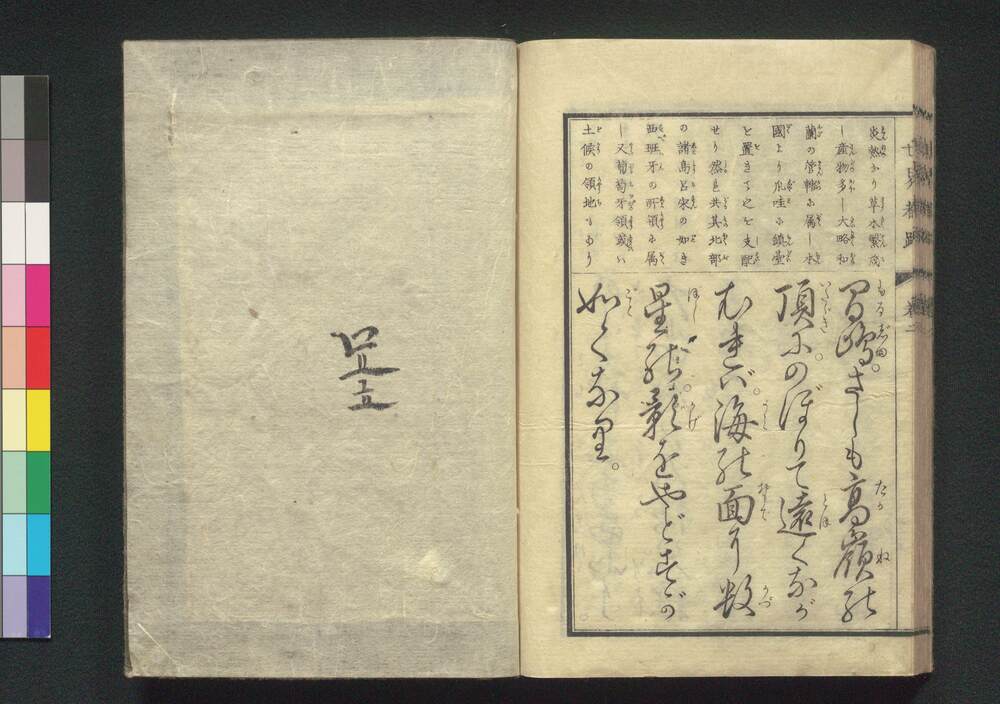 炎熱なり草木繁茂
し産物多し大略和
蘭の管轄に属し本
國より爪哇に鎮臺
を置きてこを支配
せり然を共其北部
の諸島呂宋の如き
西班牙の所領に属
し又葡萄牙領或ハ
土候の領地もあり
さしも高嶺の
頂にのぼりて遠くなが
むれバ。海の面に数
星の影をやどすが
如くなり。
世界都路
巻二